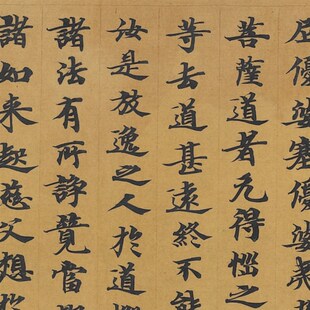 尼優婆塞優婆夷
菩薩道者无得惱之
等去道甚遠終不能
汝是放逸之人於道懈
諸法有所諍競當於
諸如来起慈父想於